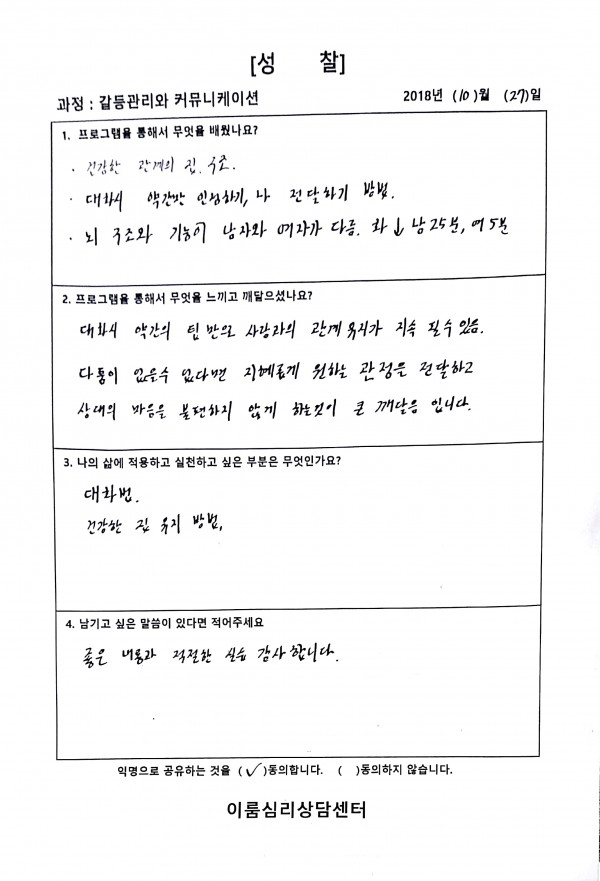 [성 찰]
과정 : 갈등관리와 커뮤니케이션 2018년 (10)월 (27)일
1. 프로그램을 통해서 무엇을 배웠나요?
· 건강한 관계의 집 구조.
· 대화시 약간만 인심하기, 나 전달하기 방법.
· 뇌 구조와 기능이 남자와 여자가 다름. 화↓ 남 25분, 여 5분
2. 프로그램을 통해서 무엇을 느끼고 깨달으셨나요?
대화시 약간의 팁만으로 사람과의 관계 유지가 지속 될수 있음.
다툼이 없을수 없다면 지혜롭게 원하는 관점을 전달하고
상대의 마음을 불편하지 않게 하는것이 큰 깨달음 입니다.
3. 나의 삶에 적용하고 실천하고 싶은 부분은 무엇인가요?
대화법.
건강한 집 유지 방법,
4. 남기고 싶은 말씀이 있다면 적어주세요
좋은 내용과 적절한 실습 감사합니다.
익명으로 공유하는 것을 (✓)동의합니다. ( )동의하지 않습니다.
이룸심리상담센터